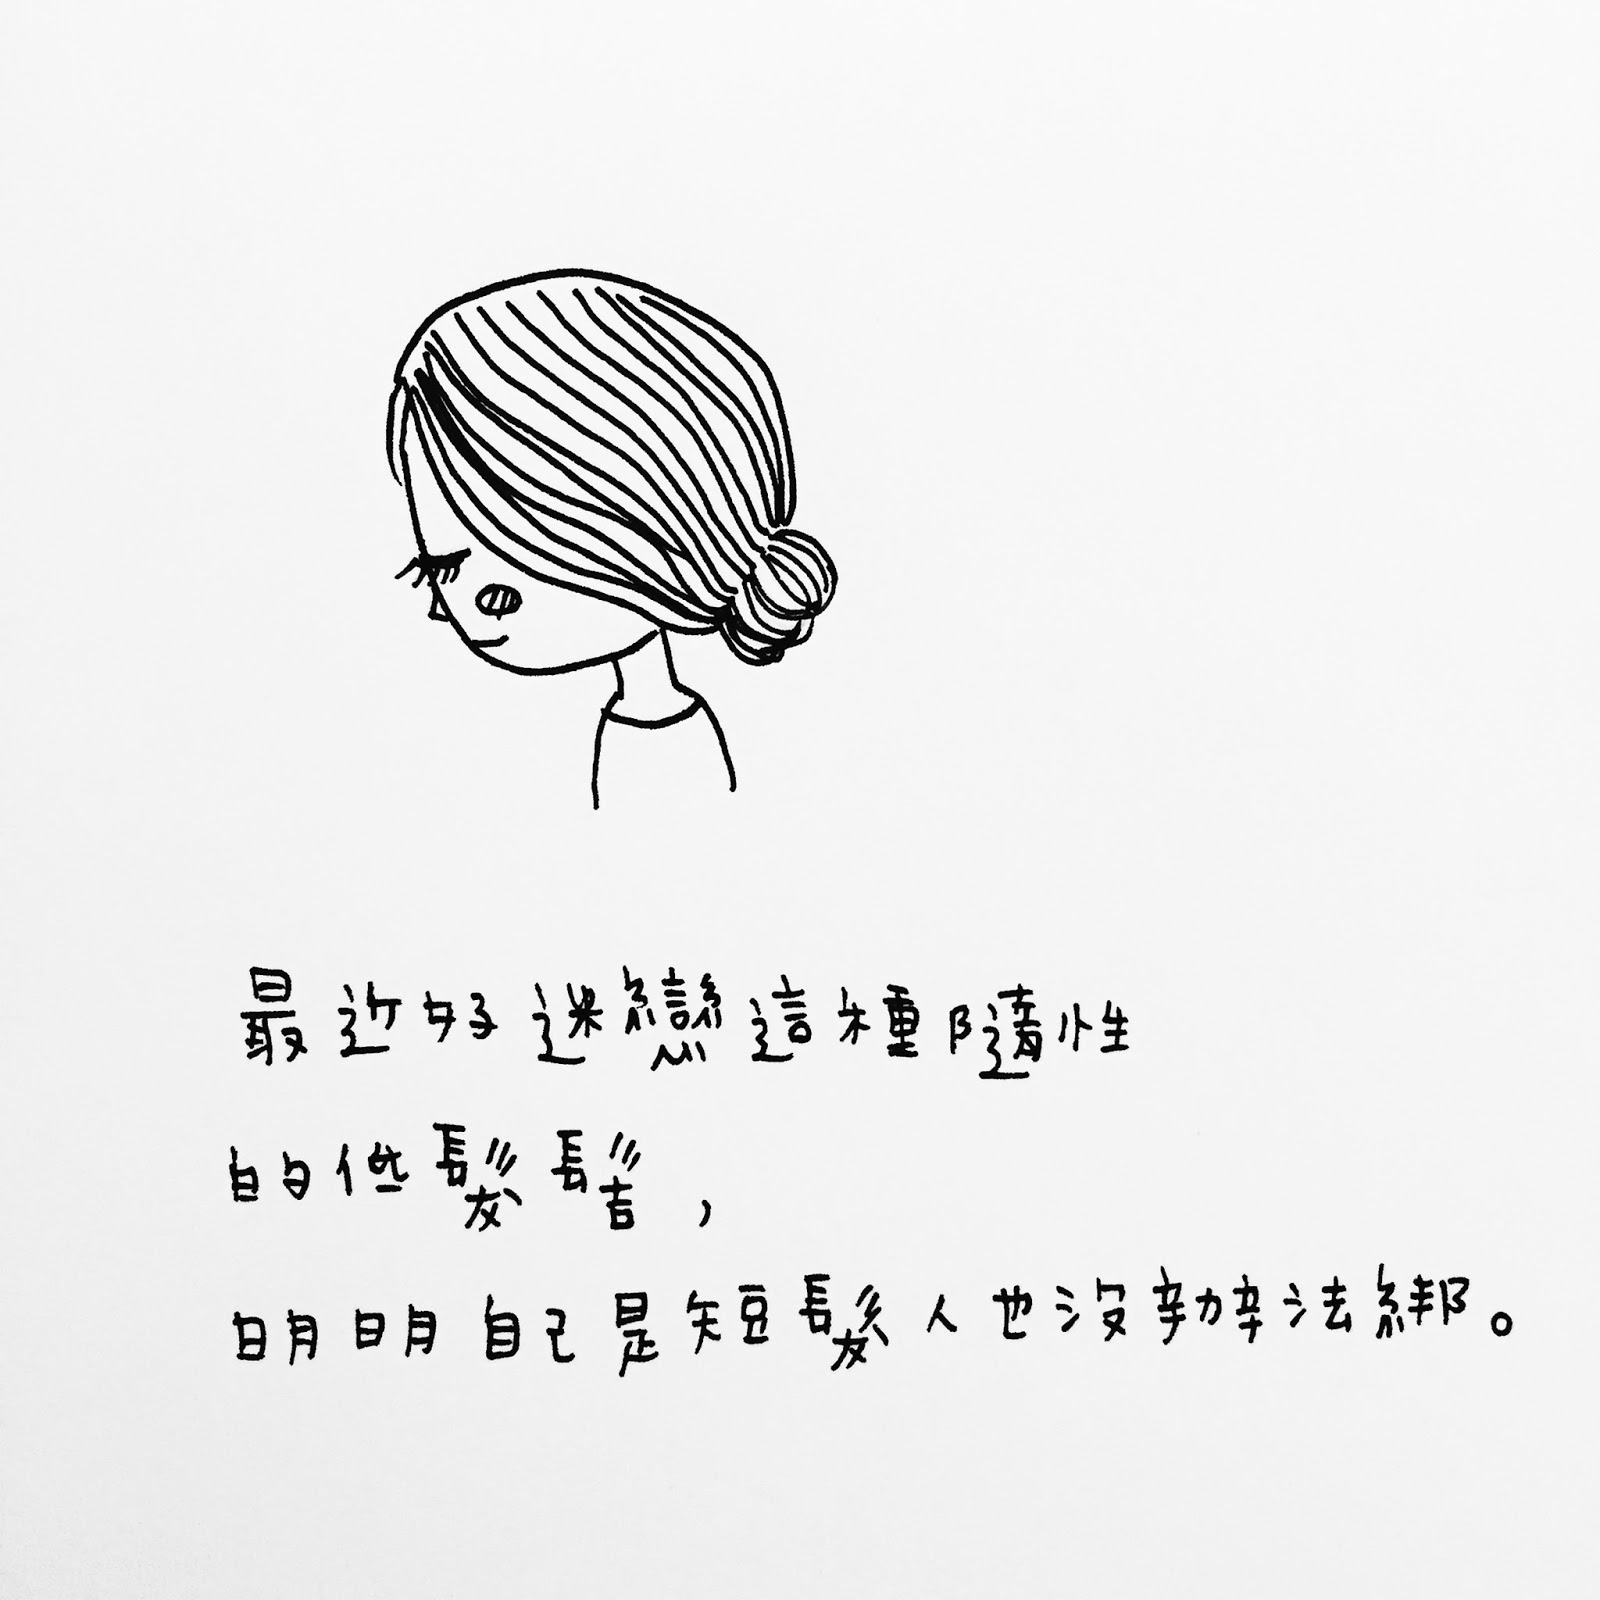 最近好迷戀這種隨性
的低髮髻，
明明自己是短髮人也沒辦法綁。